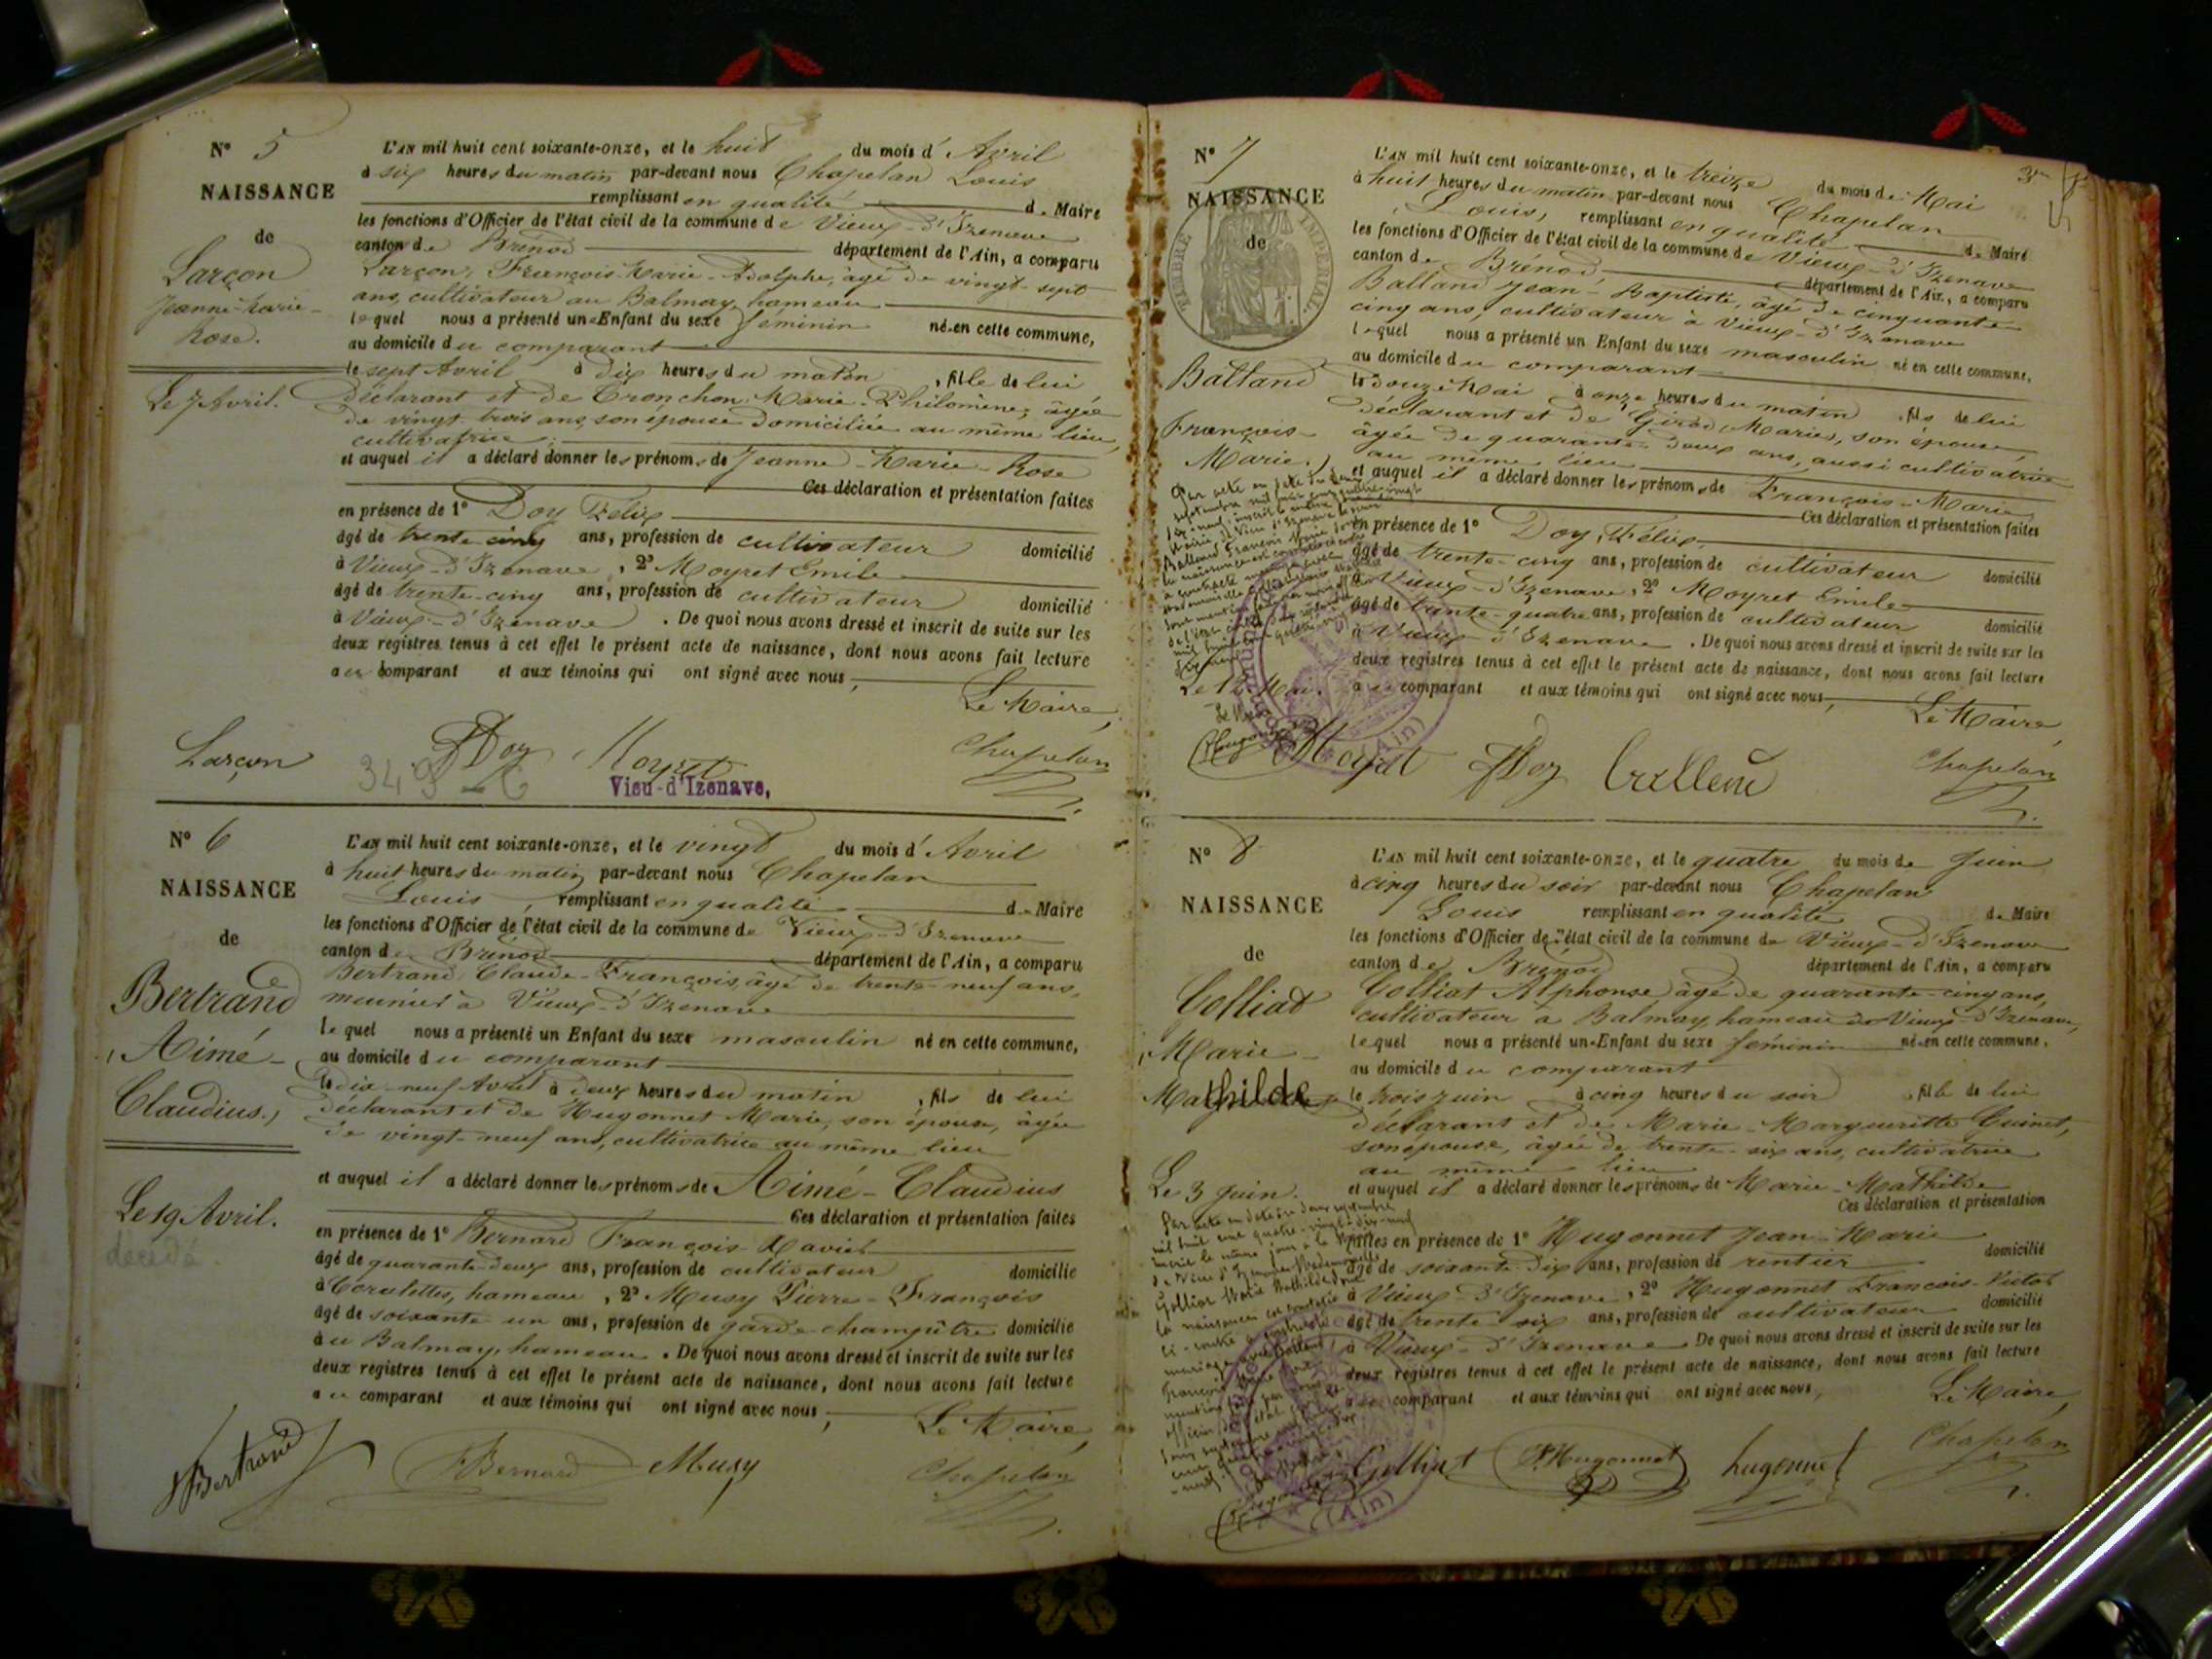 N° 5
NAISSANCE
de
Larçon
Jeanne-Marie-
Rose.
Le 7 Avril.
L'AN mil huit cent soixante-onze, et le huit du mois d'Avril
à six heures du matin par-devant nous Chapelan Louis
remplissant en qualité de Maire
les fonctions d'Officier de l'état civil de la commune de Vieux-d'Izenave
canton de Brénod département de l'Ain, a comparu
Larçon, François-Marie-Adolphe, âgé de vingt-sept
ans, cultivateur au Balmay, hameau
lequel nous a présenté un Enfant du sexe féminin né en cette commune,
au domicile du comparant
le sept Avril à dix heures du matin, fille de lui
déclarant et de Tronchon Marie-Philomène, âgée
de vingt trois ans, son épouse domiciliée au même lieu,
cultivatrice
et auquel il a déclaré donner les prénoms de Jeanne-Marie-Rose
Ces déclaration et présentation faites
en présence de 1° Doy Félix
âgé de trente cinq ans, profession de cultivateur domicilié
à Vieux-d'Izenave, 2° Moyret Emile
âgé de trente-cinq ans, profession de cultivateur domicilié
à Vieux-d'Izenave. De quoi nous avons dressé et inscrit de suite sur les
deux registres tenus à cet effet le présent acte de naissance, dont nous avons fait lecture
au comparant et aux témoins qui ont signé avec nous,
Le Maire,
Larçon Doy Moyret Chapelan
Vieu-d'Izenave,
N° 6
NAISSANCE
de
Bertrand
Aimé-
Claudius.
Le 19 Avril.
décédé.
L'AN mil huit cent soixante-onze, et le vingt du mois d'Avril
à huit heures du matin par-devant nous Chapelan
Louis, remplissant en qualité de Maire
les fonctions d'Officier de l'état civil de la commune de Vieux-d'Izenave
canton de Brénod département de l'Ain, a comparu
Bertrand, Claude-François, âgé de trente-neuf ans,
meunier à Vieux-d'Izenave
lequel nous a présenté un Enfant du sexe masculin né en cette commune,
au domicile du comparant
le dix-neuf Avril à deux heures du matin, fils de lui
déclarant et de Hugonnet Marie, son épouse, âgée
de vingt-neuf ans, cultivatrice au même lieu
et auquel il a déclaré donner les prénoms de Aimé-Claudius
Ces déclaration et présentation faites
en présence de 1° Bernard François-Xavier
âgé de quarante deux ans, profession de cultivateur domicilié
à hameau, 2° Musy Pierre-François
âgé de soixante un ans, profession de garde-champêtre domicilié
au Balmay, hameau. De quoi nous avons dressé et inscrit de suite sur les
deux registres tenus à cet effet le présent acte de naissance, dont nous avons fait lecture
au comparant et aux témoins qui ont signé avec nous,
Le Maire,
Bertrand Bernard Musy Chapelan
N° 7
NAISSANCE
de
TIMBRE IMPÉRIAL
Balland
François-
Marie.
Le 12 Mai.
L'AN mil huit cent soixante-onze, et le treize du mois de Mai
à huit heures du matin par-devant nous Chapelan
Louis, remplissant en qualité de Maire
les fonctions d'Officier de l'état civil de la commune de Vieux-d'Izenave
canton de Brénod département de l'Ain, a comparu
Balland Jean-Baptiste, âgé de cinquante
cinq ans, cultivateur à Vieux-d'Izenave
lequel nous a présenté un Enfant du sexe masculin né en cette commune,
au domicile du comparant
le douze Mai à onze heures du matin, fils de lui
déclarant et de Girod Marie, son épouse,
âgée de quarante-deux ans, aussi cultivatrice
au même lieu
et auquel il a déclaré donner les prénoms de François-Marie
Ces déclaration et présentation faites
en présence de 1° Doy Félix
âgé de trente-cinq ans, profession de cultivateur domicilié
à Vieux-d'Izenave, 2° Moyret Emile
âgé de trente-quatre ans, profession de cultivateur domicilié
à Vieux-d'Izenave. De quoi nous avons dressé et inscrit de suite sur les
deux registres tenus à cet effet le présent acte de naissance, dont nous avons fait lecture
au comparant et aux témoins qui ont signé avec nous,
Le Maire,
Moyret Doy Balland Chapelan
(Ain)
N° 8
NAISSANCE
de
Golliat
Marie-
Mathilde
Le 3 Juin.
Par acte en date du deux septembre
mil huit cent quatre-vingt-dix-neuf
L'AN mil huit cent soixante-onze, et le quatre du mois de Juin
à cinq heures du soir par-devant nous Chapelan
Louis remplissant en qualité de Maire
les fonctions d'Officier de l'état civil de la commune de Vieux-d'Izenave
canton de Brénod département de l'Ain, a comparu
Golliat Alphonse, âgé de quarante-cinq ans,
cultivateur à Balmay, hameau de Vieux-d'Izenave,
lequel nous a présenté un Enfant du sexe féminin né en cette commune,
au domicile du comparant
le trois juin à cinq heures du soir, fille de lui
déclarant et de Marie-Margueritte Guinet,
son épouse, âgée de trente-six ans, cultivatrice
au même lieu
et auquel il a déclaré donner les prénoms de Marie-Mathilde
Ces déclaration et présentation
faites en présence de 1° Hugonnet Jean-Marie
âgé de soixante-dix ans, profession de rentier domicilié
à Vieux-d'Izenave, 2° Hugonnet François-Victor
âgé de trente six ans, profession de cultivateur domicilié
à Vieux-d'Izenave De quoi nous avons dressé et inscrit de suite sur les
deux registres tenus à cet effet le présent acte de naissance, dont nous avons fait lecture
au comparant et aux témoins qui ont signé avec nous,
Le Maire,
Golliat Hugonnet hugonnet Chapelan
(Ain)